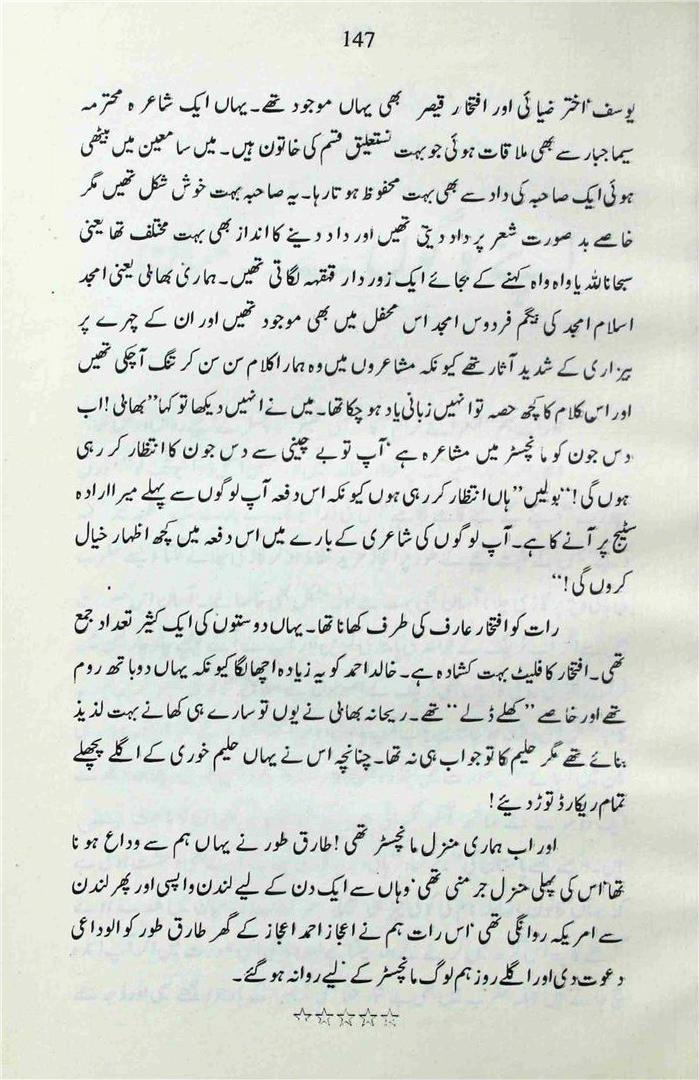 147
یوسف' اختر ضیائی اور افتخار قیصر بھی یہاں موجود تھے۔ یہاں ایک شاعرہ محترمہ
سیما جبار سے بھی ملاقات ہوئی جو بہت نستعلیق قسم کی خاتون ہیں۔ میں سامعین میں بیٹھی
ہوئی ایک صاحبہ کی داد سے بھی بہت محفوظ ہوتا رہا۔ یہ صاحبہ بہت خوش شکل تھیں مگر
خاصے بد صورت شعر پر داد دیتی تھیں اور داد دینے کا انداز بھی بہت مختلف تھا یعنی
سبحان اللہ یا واہ واہ کہنے کے بجائے ایک زور دار قہقہہ لگاتی تھیں۔ ہماری بھابی یعنی امجد
اسلام امجد کی بیگم فردوس امجد اس محفل میں بھی موجود تھیں اور ان کے چہرے پر
بیزاری کے شدید آثار تھے کیونکہ مشاعروں میں وہ ہمارا کلام سن سن کر تنگ آ چکی تھیں
اور اس کلام کا کچھ حصہ تو انہیں زبانی یاد ہو چکا تھا۔ میں نے انہیں دیکھا تو کہا ”بھابی! اب
دس جون کو مانچسٹر میں مشاعرہ ہے' آپ تو بے چینی سے دس جون کا انتظار کر رہی
ہوں گی!“ بولیں ”ہاں انتظار کر رہی ہوں کیونکہ اس دفعہ آپ لوگوں سے پہلے میرا ارادہ
سٹیج پر آنے کا ہے۔ آپ لوگوں کی شاعری کے بارے میں اس دفعہ میں کچھ اظہار خیال
کروں گی!“
رات کو افتخار عارف کی طرف کھانا تھا۔ یہاں دوستوں کی ایک کثیر تعداد جمع
تھی۔ افتخار کا فلیٹ بہت کشادہ ہے۔ خالد احمد کو یہ زیادہ اچھا لگا کیونکہ یہاں دو باتھ روم
تھے اور خاصے ”کھلے ڈلے“ تھے۔ ریحانہ بھابی نے یوں تو سارے ہی کھانے بہت لذیذ
بنائے تھے مگر حلیم کا تو جواب ہی نہ تھا۔ چنانچہ اس نے یہاں حلیم خوری کے اگلے پچھلے
تمام ریکارڈ توڑ دیئے!
اور اب ہماری منزل مانچسٹر تھی! طارق طور نے یہاں ہم سے وداع ہونا
تھا' اس کی پہلی منزل جرمنی تھی' وہاں سے ایک دن کے لیے لندن واپسی اور پھر لندن
سے امریکہ روانگی تھی' اس رات ہم نے اعجاز احمد اعجاز کے گھر طارق طور کو الوداعی
دعوت دی اور اگلے روز ہم لوگ مانچسٹر کے لیے روانہ ہو گئے۔
☆☆☆☆☆